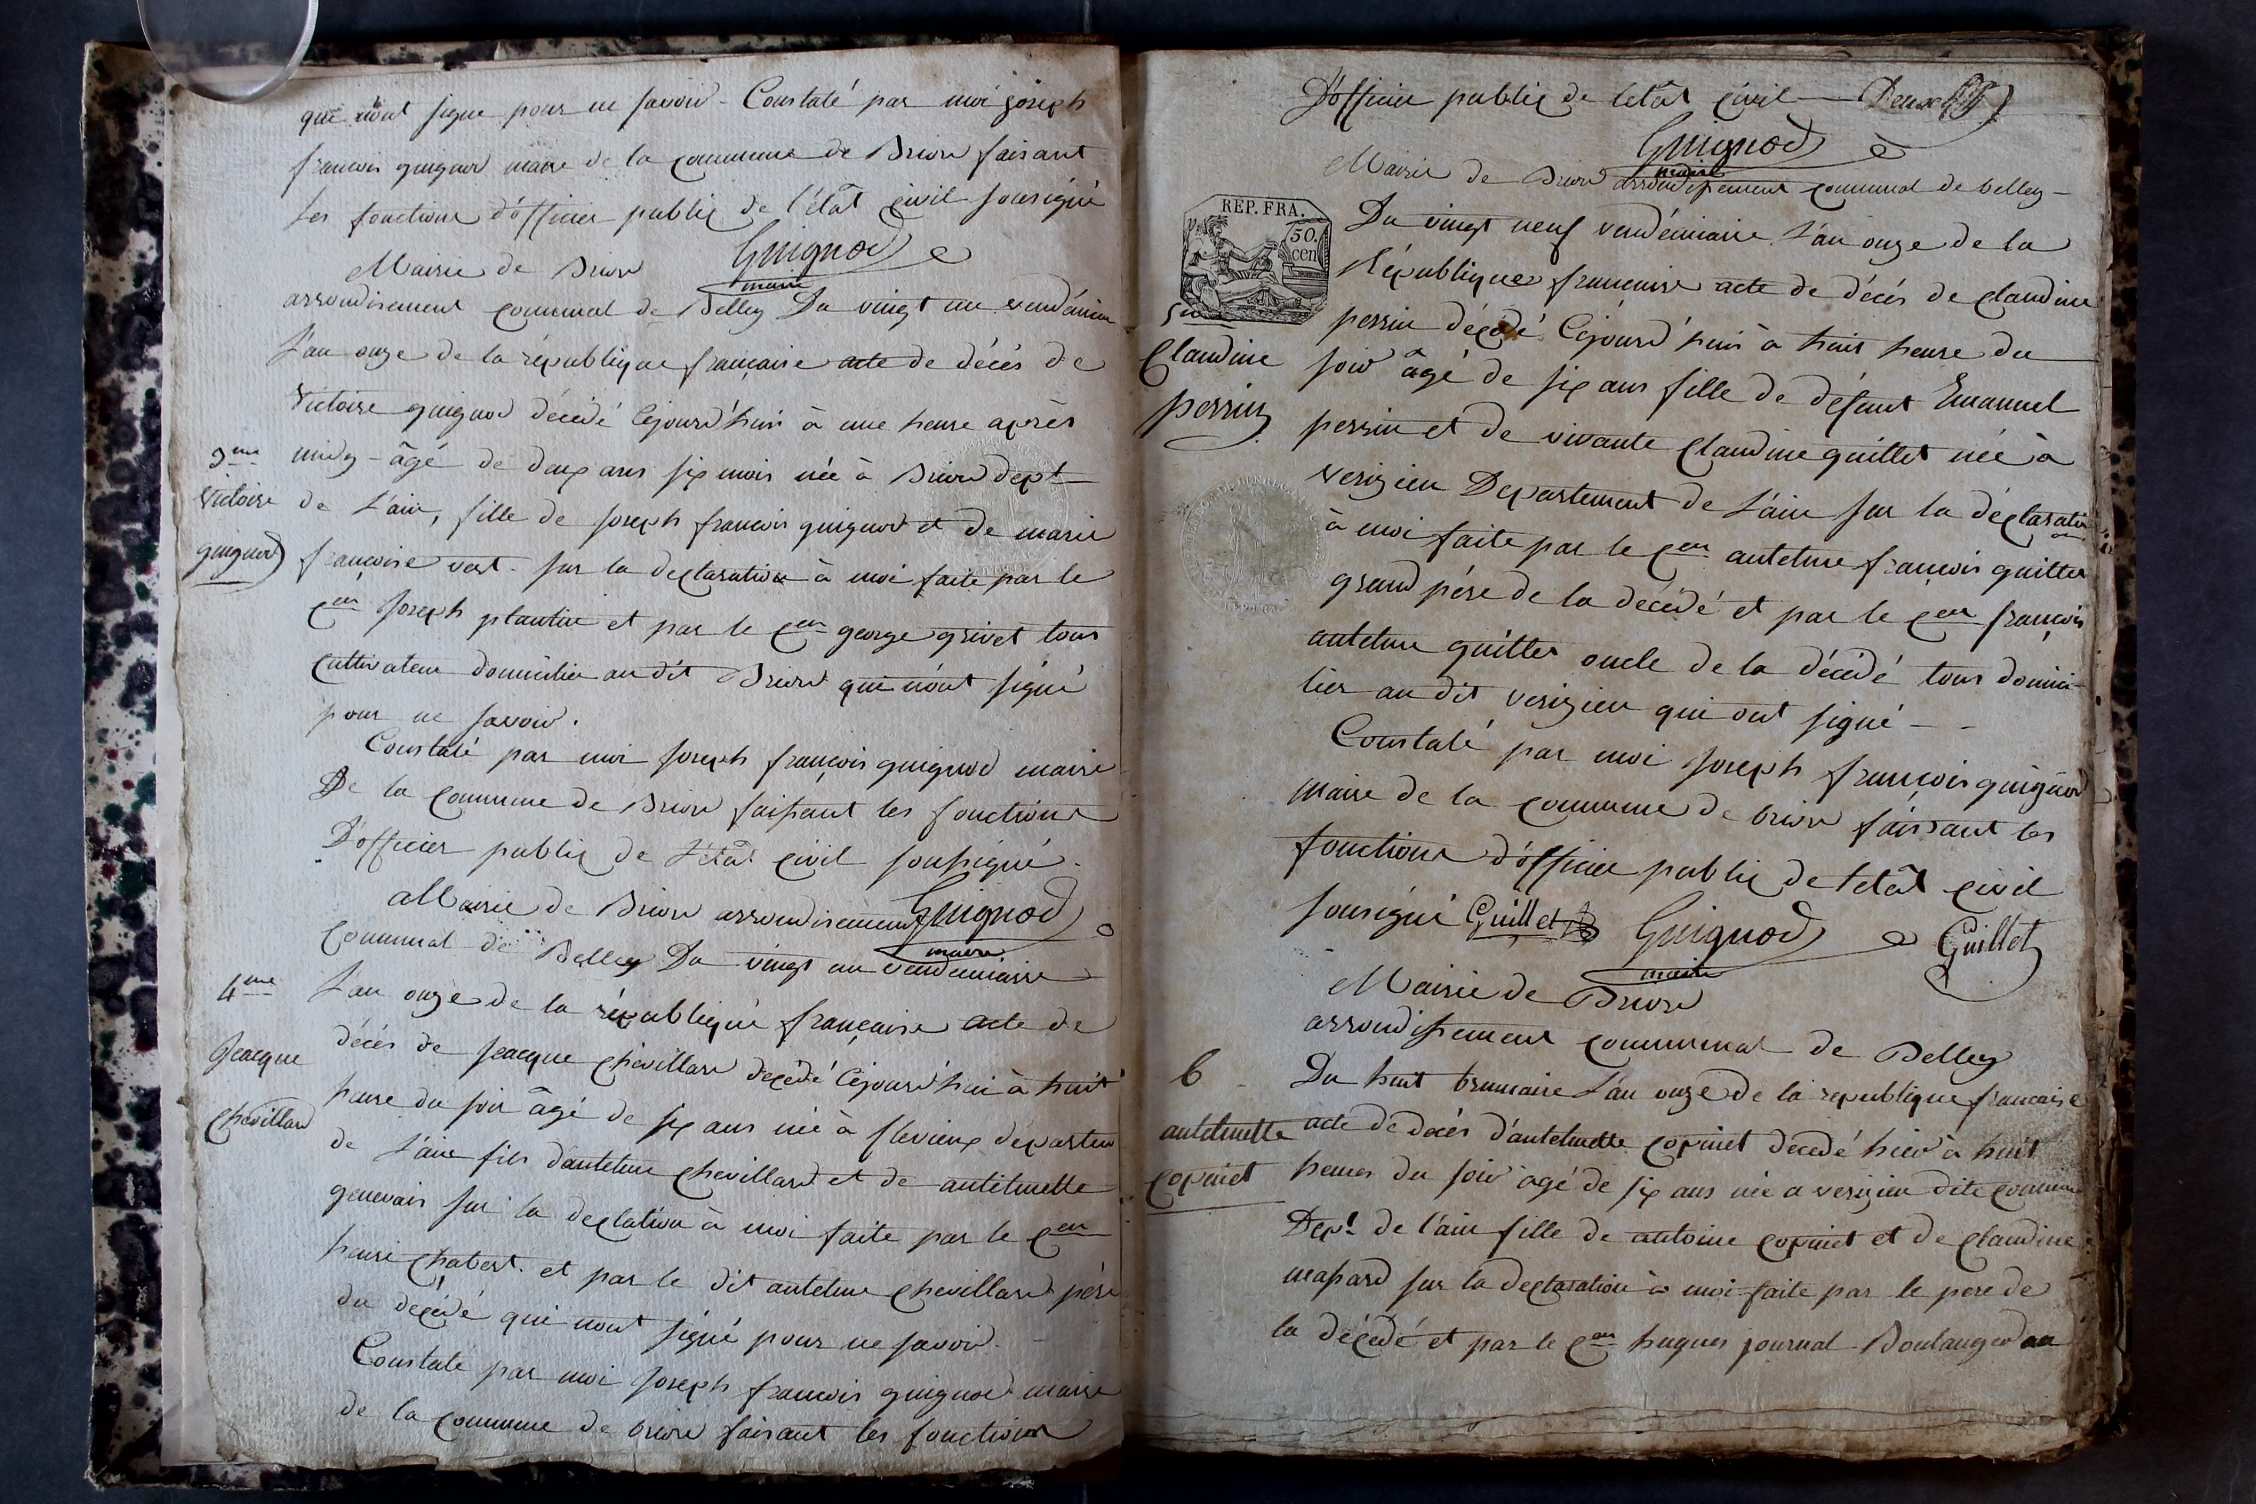 que nont signe pour ne savoir - Constaté par moi joseph
francois guignod maire de la commune de Briord faisant
les fonctions d'officier public de l'état civil sousigné
Guignod
maire
Mairie de Briord
arrondisement communal de Belley Du vingt un vendémiair
L'an onze de la république française acte de décés de
Victoire guignod décédé cejourd'hui à une heure après
3me
Victoire
guignod
midy - âgé de deux ans six mois née à Briord dept
de L'ain, fille de joseph francois guignod et de marie
françoise vest - sur la declaration à moi faite par le
cen joseph plantin et par le cen george grivet tous
cultivateur domicilier au dit Briord qui n'ont signé
pour ne savoir.
Constaté par moi joseph françois guignod maire
De la commune de Briord faissant les fonctions
D'officier public de L'état civil soussigné.
Guignod
maire
Mairie de Briord arrondisement
communal de Belley Du vingt un vendemiaire
4me
Jeacque
chevillard
L'an onze de la république française acte de
décés de jeacque chevillard decédé cejourd'hui à huit
heure du soir âgé de six ans née à flevieux départem
de L'ain fils d'antelme chevillard et de antelmette
genevais sur la declation à moi faite par le cen
henri chabert. et par le dit antelme chevillard pére
du decédé qui nont signé pour ne savoir.
Constaté par moi joseph francois guignod maire
de la commune de briord faisant les fonctions
D'officier public de letât civil - Deux
Guignod
maire
Mairie de Briord arrondissement communal de belley -
REP. FRA.
50.
cen
Du vingt neuf vendémiaire L'an onze de la
République francaise acte de décés de claudine
5me
Claudine
perrin
perrin décédé cejourd'hui à huit heure du
soir âgé de six ans fille de défunt Emanuel
perrin et de vivante claudine guillet née à
verizieu Departement de L'ain sur la déclaration
à moi faite par le cen antelme françois guillet
grand pére de la décédé et par le cen françois
antelme guillet oncle de la décédé tous domici-
lier au dit verizieu qui ont signé -
Constaté par moi joseph françois guignod
maire de la commune de briord faisant les
fonctions d'officier public de letât civil
sousigné Guillet Guignod Guillet
maire
Mairie de Briord
arrondissement communal de Belley
6
antelmette
copinet
Du huit brumaire L'an onze de la republique francaise
acte de décés d'antelmette copinet decedé hier à huit
heures du soir agé de six ans née a verizieu dite commune
Dept de l'ain fille de antoine copinet et de claudine
massard sur la declaration à moi faite par le pere de
la décedé et par le cen hugues journal Boulanger au